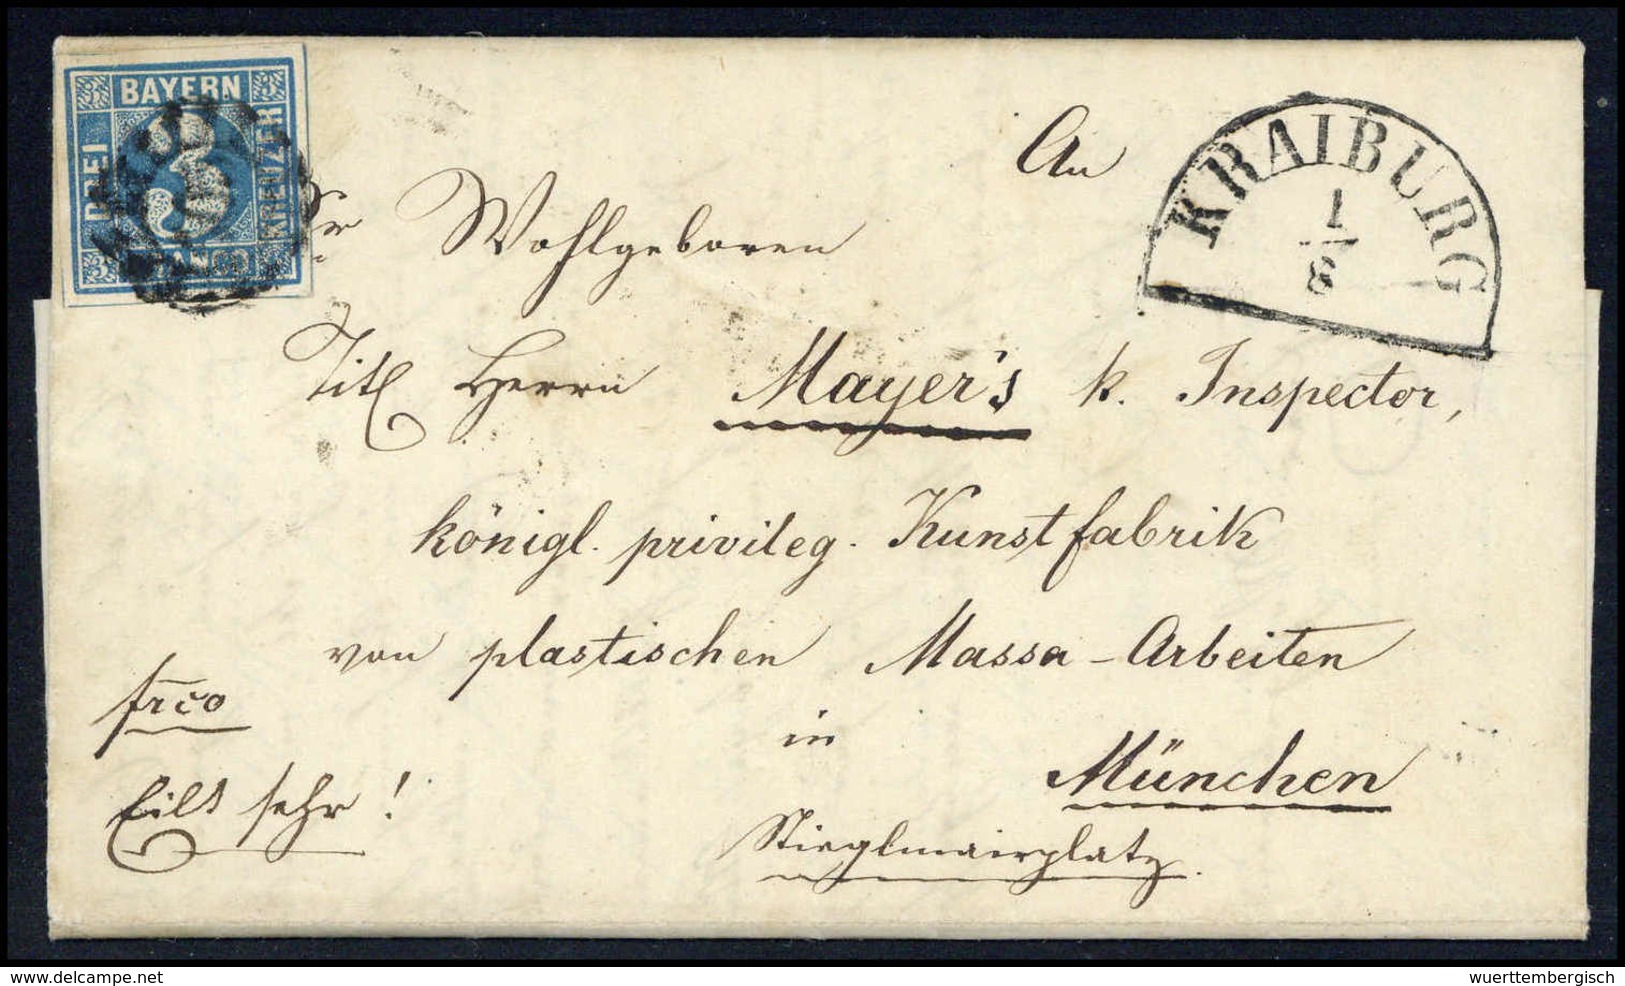 BAYERN
DREI
KREUZER
3
KRAIBURG
1
8
An
Sr Wohlgeboren
Titl Herrn Mayer's k. Inspector,
königl. privileg. Kunstfabrik
von plastischen Massa-Arbeiten
in
München
Stieglmairplatz.
frco
Eilt sehr!
the-rzd-2
wuerttembergisch